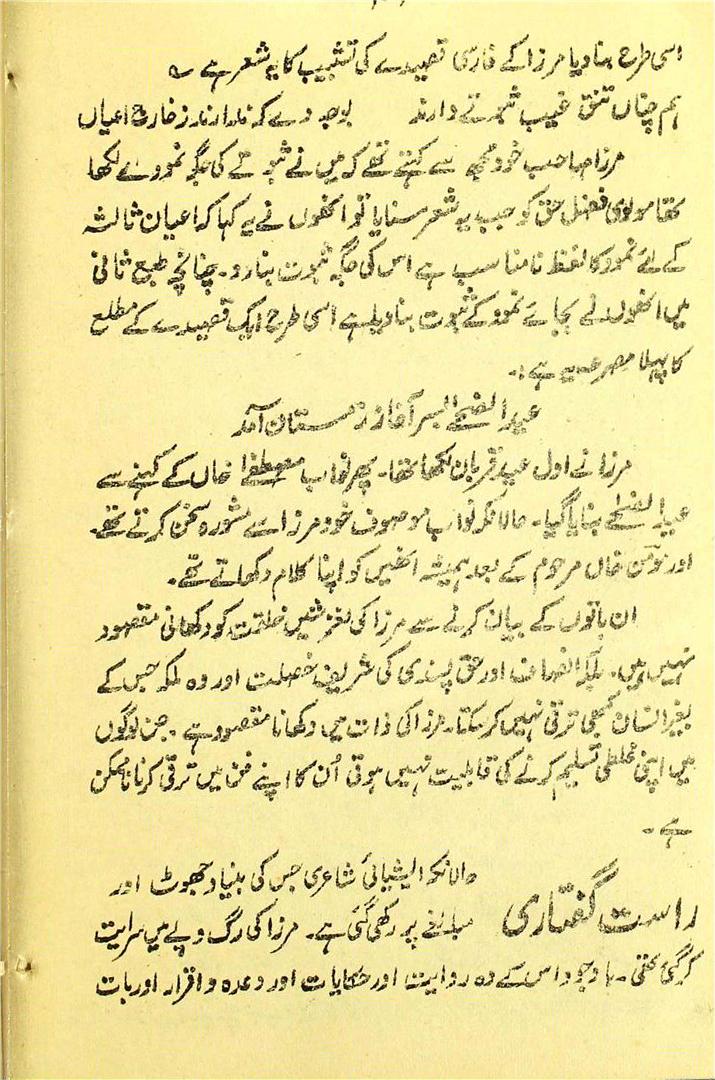 اسی طرح بنا دیا مرزا کے فارسی قصیدے کی تشبیب کا یہ شعر ہے ؎
ہم چناں تتق غیب ثبوتے دارند بوجودے کہ ندارند ز خارج اعیاں
مرزا صاحب خود مجھ سے کہتے تھے کہ میں نے ثبوتے کی جگہ نمودے لکھا
تھا مولوی فضل حق کو جب یہ شعر سنایا تو انھوں نے یہ کہا کہ اعیان ثالثہ
کے لئے نمود کا لفظ نامناسب ہے اس کی جگہ ثبوت بنا دو۔ چنانچہ طبع ثانی
میں انھوں نے بجائے نمود کے ثبوت بنا دیا ہے اسی طرح ایک قصیدے کے مطلع
کا پہلا مصرعہ یہ ہے:۔
عید الضحےٰ بسر آغاز زمستان آمد
مرزا نے اول عید قربان لکھا تھا۔ پھر نواب مصطفےٰ خاں کے کہنے سے
عید الضحےٰ بنایا گیا۔ حالانکہ نواب موصوف خود مرزا سے مشورہ سخن کرتے تھے۔
اور مومن خاں مرحوم کے بعد ہمیشہ انھیں کو اپنا کلام دکھاتے تھے۔
ان باتوں کے بیان کرنے سے مرزا کی لغزشیں خلقت کو دکھانی مقصود
نہیں ہیں۔ بلکہ انصاف اور حق پسندی کی شریف خصلت اور وہ ملکہ جس کے
بغیر انسان کبھی ترقی نہیں کر سکتا۔ مرزا کی ذات میں دکھانا مقصود ہے۔ جن لوگوں
میں اپنی غلطی تسلیم کرنے کی قابلیت نہیں ہوتی اُن کا اپنے فن میں ترقی کرنا ناممکن
ہے۔
راست گفتاری حالانکہ ایشیائی شاعری جس کی بنیاد جھوٹ اور
مبالغے پر رکھی گئی ہے۔ مرزا کی رگ و پے میں سرایت
کر گئی تھی۔ باوجود اس کے وہ روایت اور حکایات اور وعدہ و اقرار اور بات